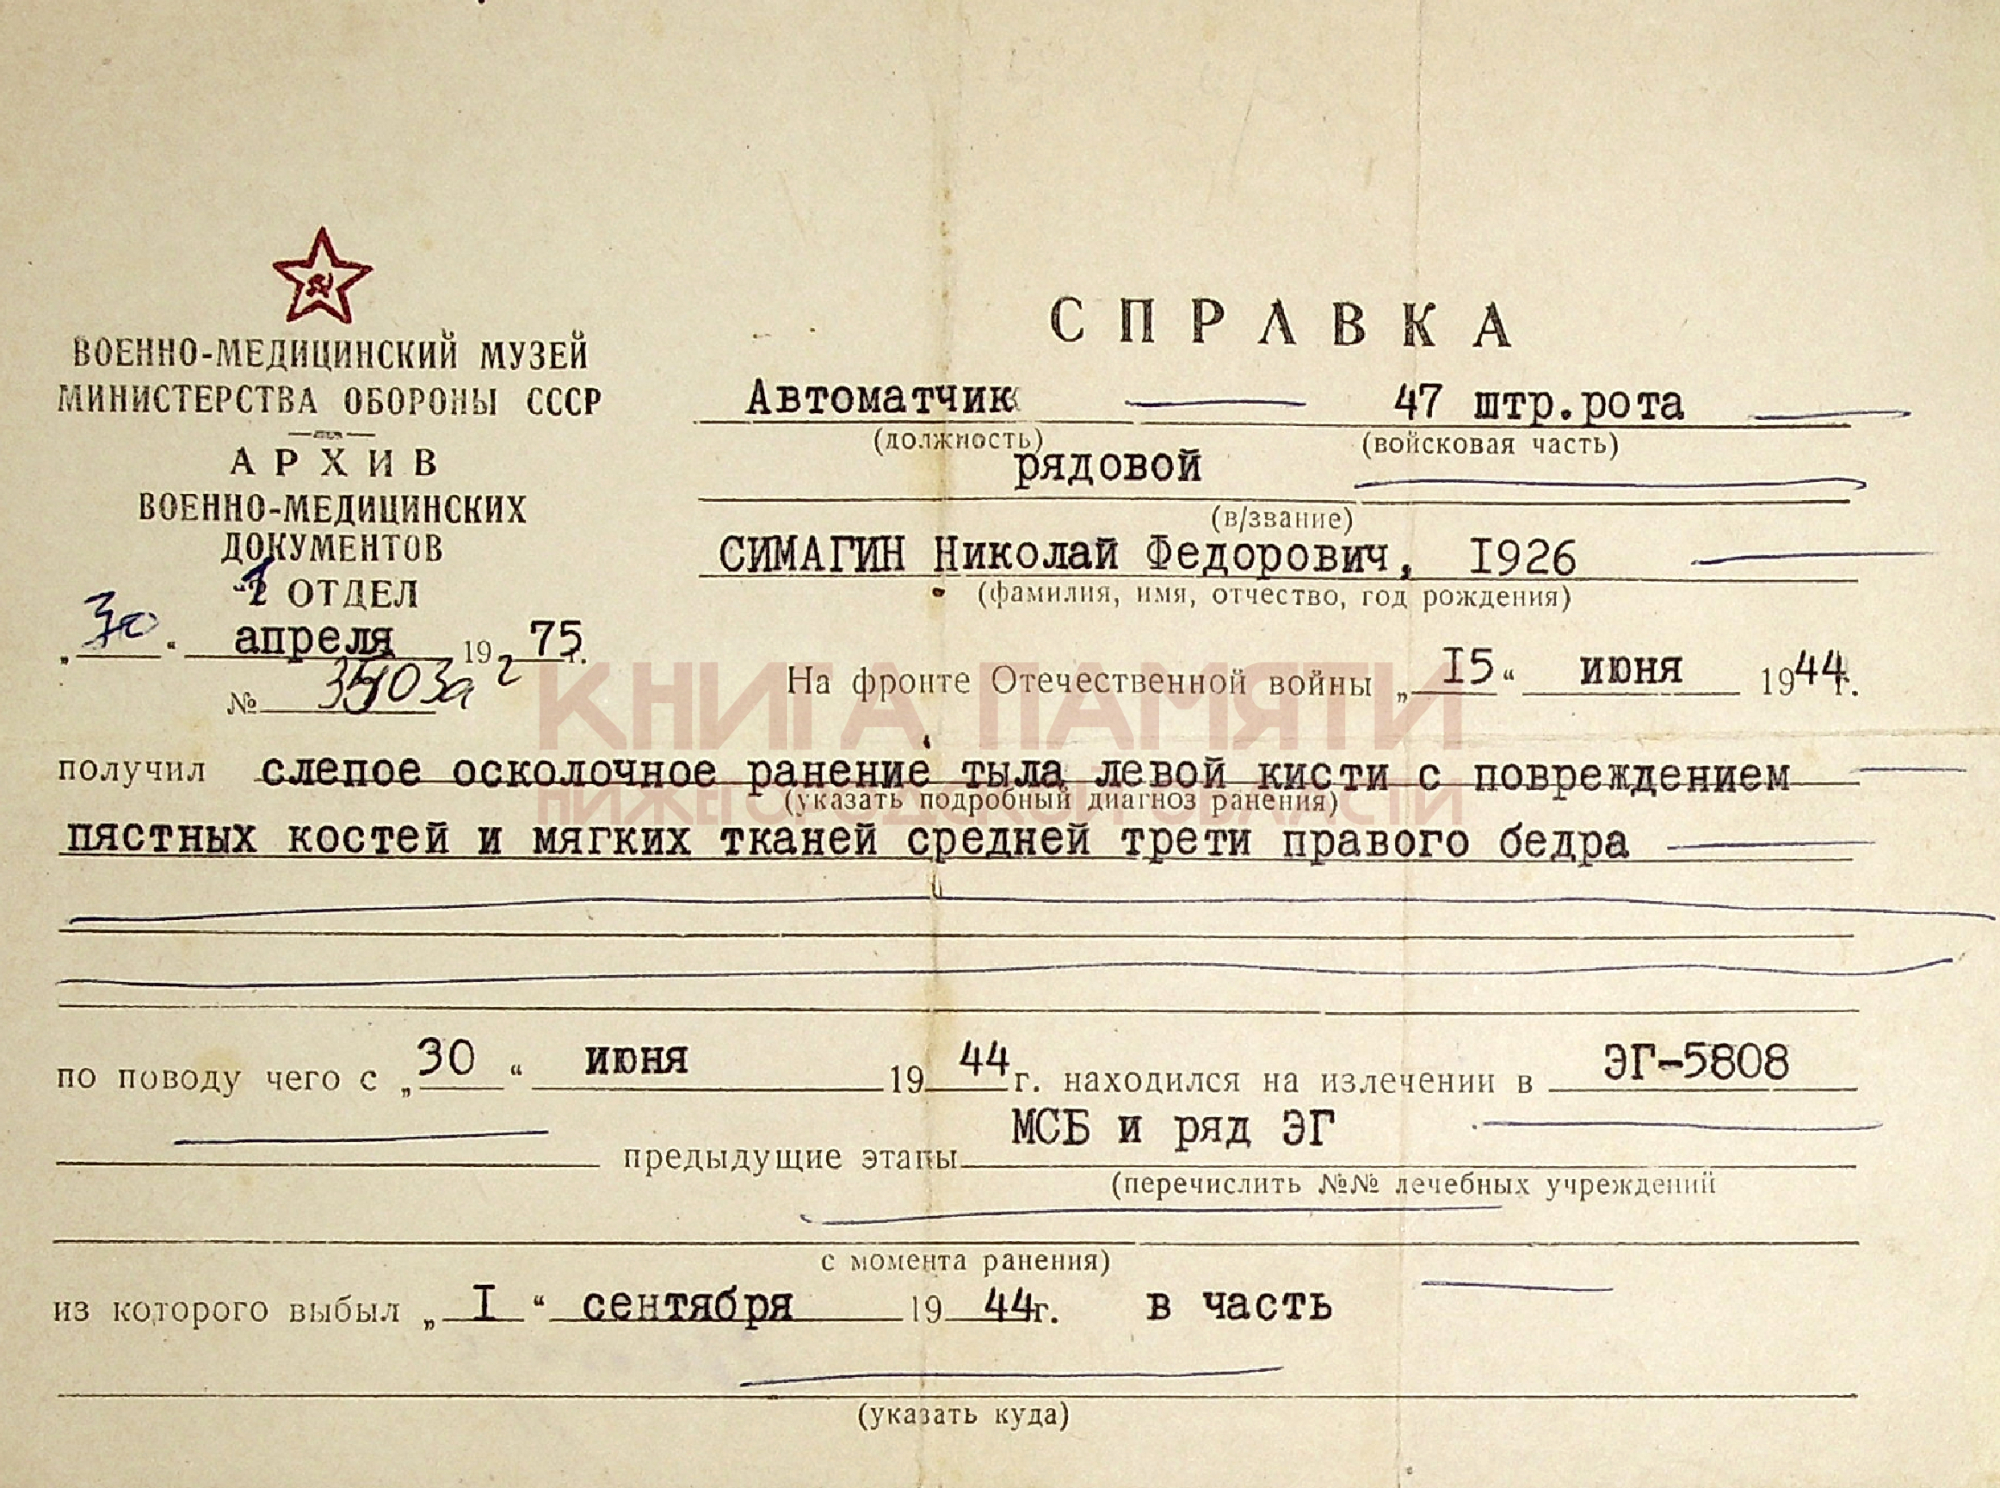 ВОЕННО-МЕДИЦИНСКИЙ МУЗЕЙ
МИНИСТЕРСТВА ОБОРОНЫ СССР
АРХИВ
ВОЕННО-МЕДИЦИНСКИХ
ДОКУМЕНТОВ
1 ОТДЕЛ
„30“ апреля 1975 г.
№
СПРАВКА
Автоматчик 47 штр.рота
(должность) (войсковая часть)
рядовой
(в/звание)
СИМАГИН Николай Федорович, I926
(фамилия, имя, отчество, год рождения)
На фронте Отечественной войны „I5“ июня 1944г.
КНИГА ПАМЯТИ
НИЖЕГОРОДСКОЙ ОБЛАСТИ
получил слепое осколочное ранение тыла левой кисти с повреждением
(указать подробный диагноз ранения)
пястных костей и мягких тканей средней трети правого бедра
по поводу чего с „30“ июня 1944г. находился на излечении в ЭГ-5808
предыдущие этапы МСБ и ряд ЭГ
(перечислить №№ лечебных учреждений
с момента ранения)
из которого выбыл „I“ сентября 1944г. в часть
(указать куда)